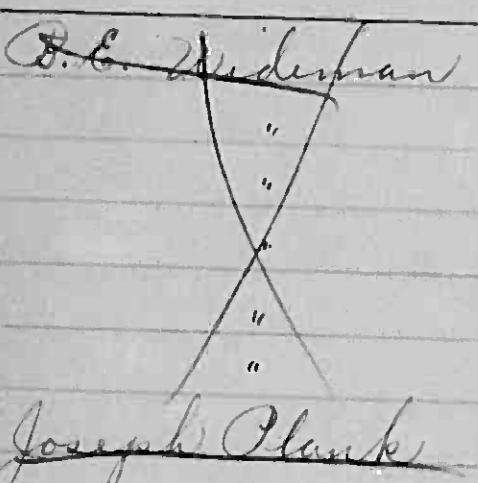 B. E. Wideman
"
"
"
"
"
Joseph Plank